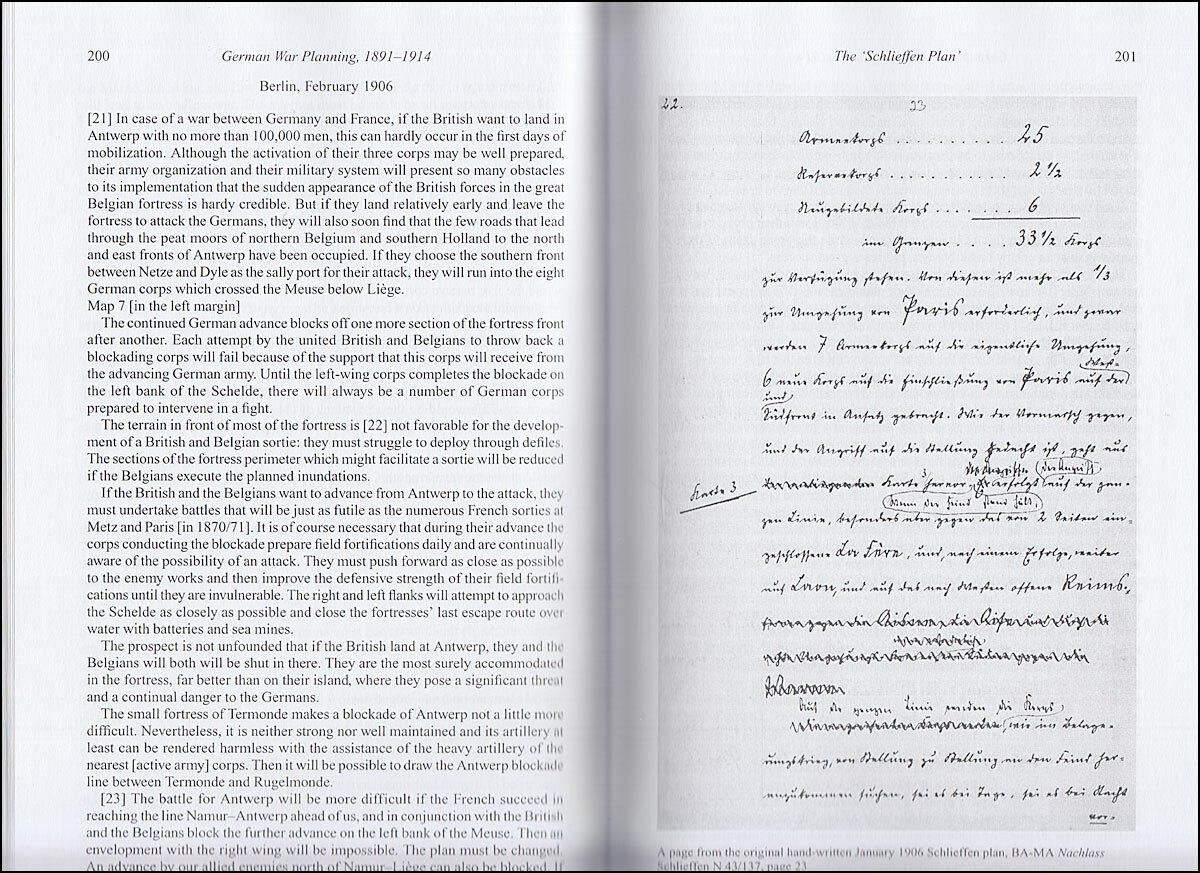 200
German War Planning, 1891–1914
Berlin, February 1906
[21] In case of a war between Germany and France, if the British want to land in
Antwerp with no more than 100,000 men, this can hardly occur in the first days of
mobilization. Although the activation of their three corps may be well prepared,
their army organization and their military system will present so many obstacles
to its implementation that the sudden appearance of the British forces in the great
Belgian fortress is hardy credible. But if they land relatively early and leave the
fortress to attack the Germans, they will also soon find that the few roads that lead
through the peat moors of northern Belgium and southern Holland to the north
and east fronts of Antwerp have been occupied. If they choose the southern front
between Netze and Dyle as the sally port for their attack, they will run into the eight
German corps which crossed the Meuse below Liège.
Map 7 [in the left margin]
The continued German advance blocks off one more section of the fortress front
after another. Each attempt by the united British and Belgians to throw back a
blockading corps will fail because of the support that this corps will receive from
the advancing German army. Until the left-wing corps completes the blockade on
the left bank of the Schelde, there will always be a number of German corps
prepared to intervene in a fight.
The terrain in front of most of the fortress is [22] not favorable for the develop-
ment of a British and Belgian sortie: they must struggle to deploy through defiles.
The sections of the fortress perimeter which might facilitate a sortie will be reduced
if the Belgians execute the planned inundations.
If the British and the Belgians want to advance from Antwerp to the attack, they
must undertake battles that will be just as futile as the numerous French sorties at
Metz and Paris [in 1870/71]. It is of course necessary that during their advance the
corps conducting the blockade prepare field fortifications daily and are continually
aware of the possibility of an attack. They must push forward as close as possible
to the enemy works and then improve the defensive strength of their field fortifi-
cations until they are invulnerable. The right and left flanks will attempt to approach
the Schelde as closely as possible and close the fortresses' last escape route over
water with batteries and sea mines.
The prospect is not unfounded that if the British land at Antwerp, they and the
Belgians will both will be shut in there. They are the most surely accommodated
in the fortress, far better than on their island, where they pose a significant threat
and a continual danger to the Germans.
The small fortress of Termonde makes a blockade of Antwerp not a little more
difficult. Nevertheless, it is neither strong nor well maintained and its artillery at
least can be rendered harmless with the assistance of the heavy artillery of the
nearest [active army] corps. Then it will be possible to draw the Antwerp blockade
line between Termonde and Rugelmonde.
[23] The battle for Antwerp will be more difficult if the French succeed in
reaching the line Namur–Antwerp ahead of us, and in conjunction with the British
and the Belgians block the further advance on the left bank of the Meuse. Then an
envelopment with the right wing will be impossible. The plan must be changed.
An advance by our allied enemies north of Namur–Liège can also be blocked. If
The 'Schlieffen Plan'
201
22.
23
Armeekorps .......... 25
Reservekorps ............ 2 1/2
Neugebildete Korps ........... 6
im Ganzen .... 33 1/2 Korps
zur Verfügung stehen. Von diesen ist mehr als 1/3
zur Umgehung von Paris erforderlich, und zwar
werden 7 Armeekorps auf die eigentliche Umgehung,
West-
6 neue Korps auf die Einschließung von Paris auf der
und
Südfront in Ansatz gebracht. Wie der Vormarsch gegen,
und der Angriff auf die Stellung gedacht ist, geht aus
der Angriff
Karte 3 hervor. erfolgt auf der gan-
Karte 3
wenn der Feind stand hält
zen Linie, besonders aber gegen das von 2 Seiten ein-
geschlossene La Fère, und, nach einem Erfolge, weiter
auf Laon, und auf das nach Westen offene Reims.
Auf der ganzen Linie werden die Korps,
wie im Belage-
rungskrieg, von Stellung zu Stellung an den Feind her-
anzukommen suchen, sei es bei Tage, sei es bei Nacht
vor-
A page from the original hand-written January 1906 Schlieffen plan, BA-MA Nachlass
Schlieffen N 43/137, page 23